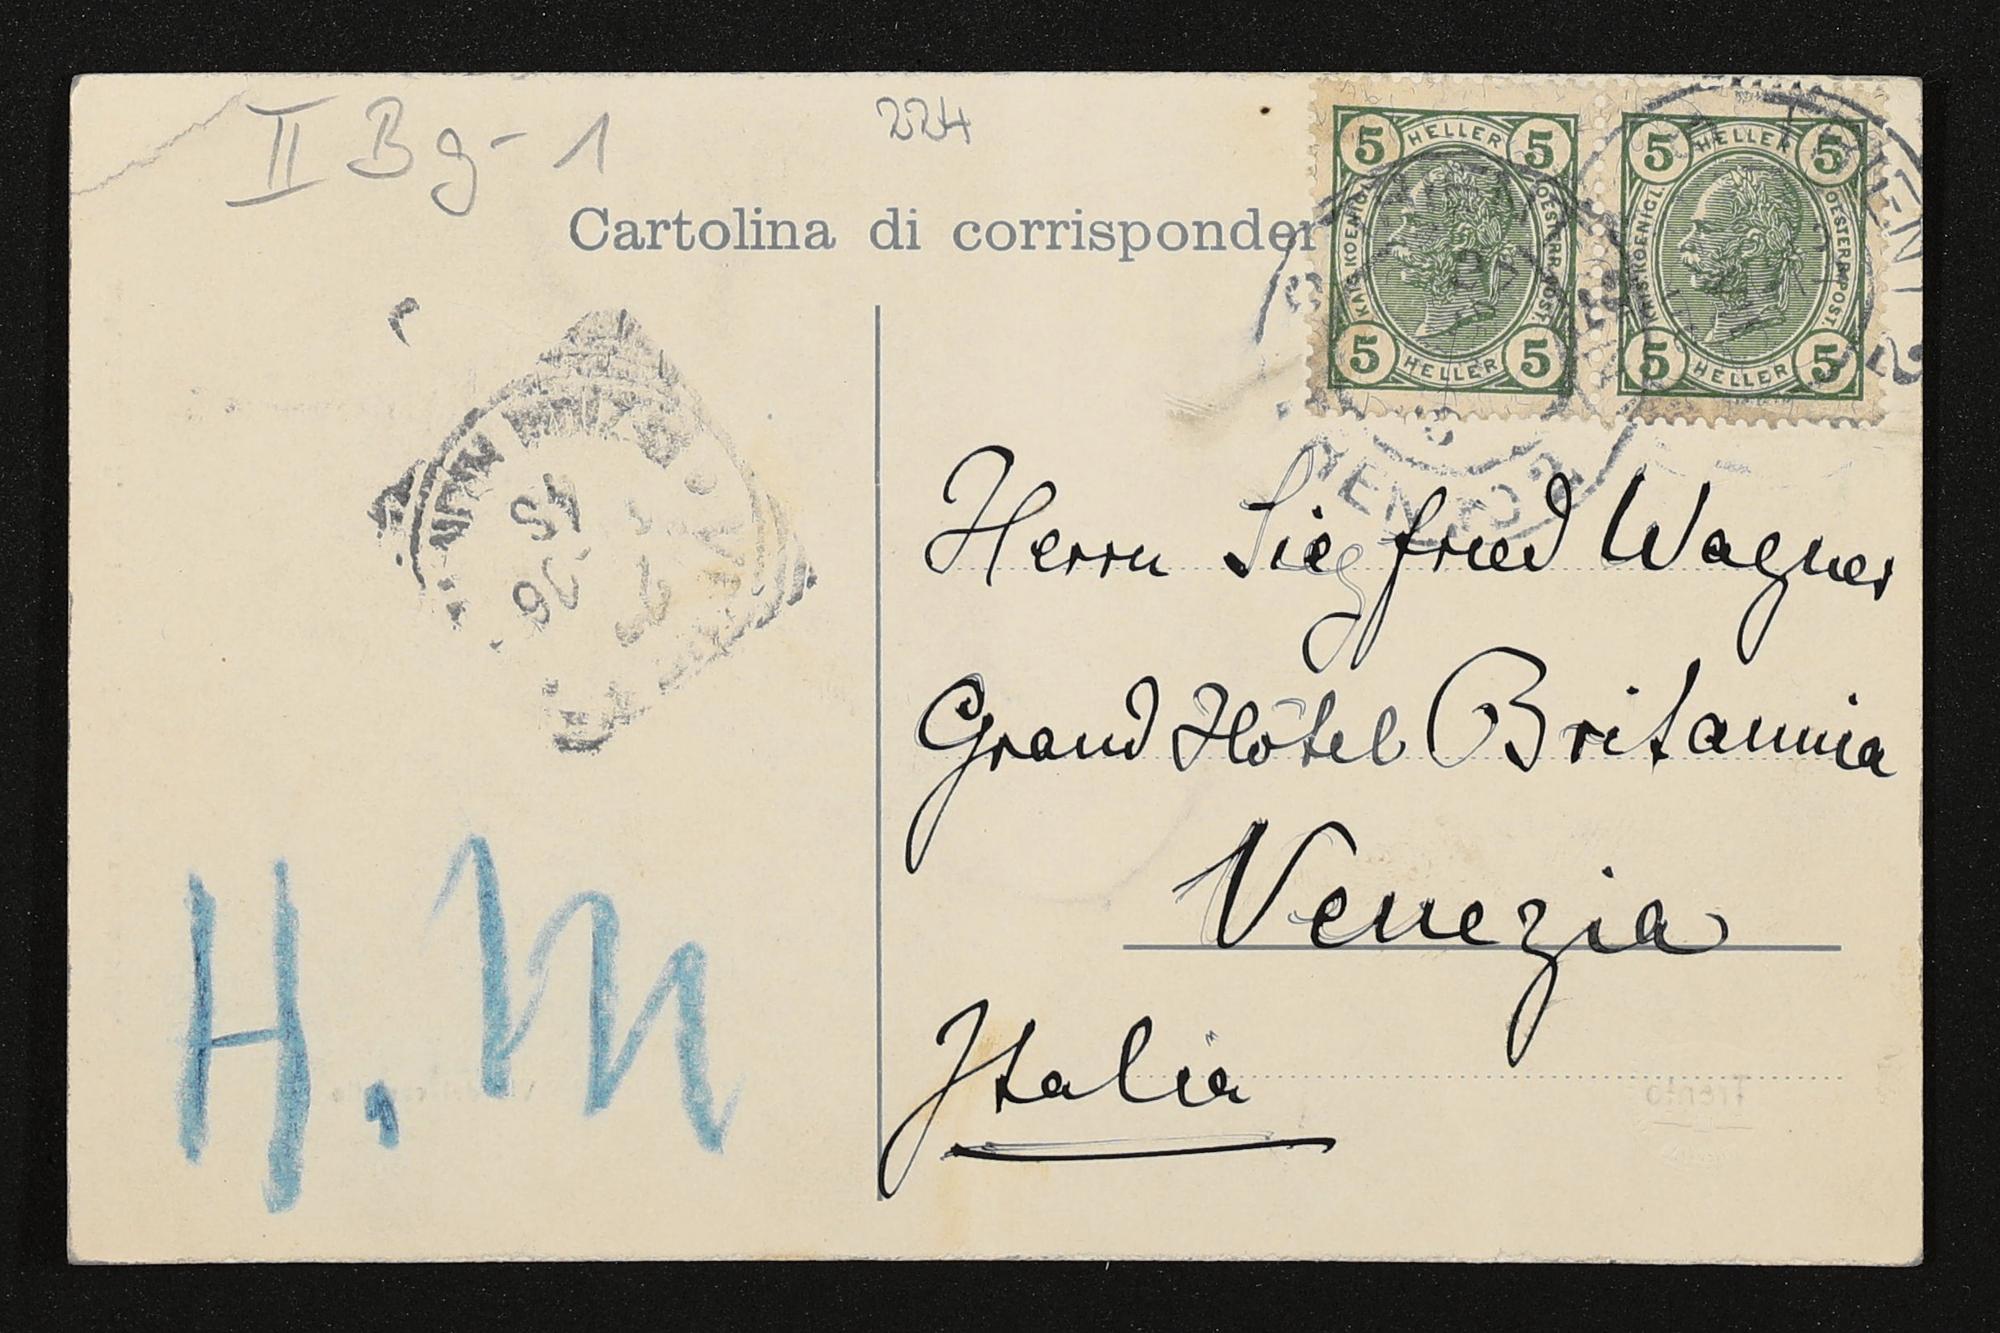 II Bg-1
224
Cartolina di corrisponden
5 HELLER 5
KAIS. KOENIGL. OESTERR. POST.
5 HELLER 5
5 HELLER 5
KAIS. KOENIGL. OESTERR. POST.
5 HELLER 5
Herrn Siegfried Wagner
Grand Hôtel Britannia
Venezia
Italia
H. M
Trento